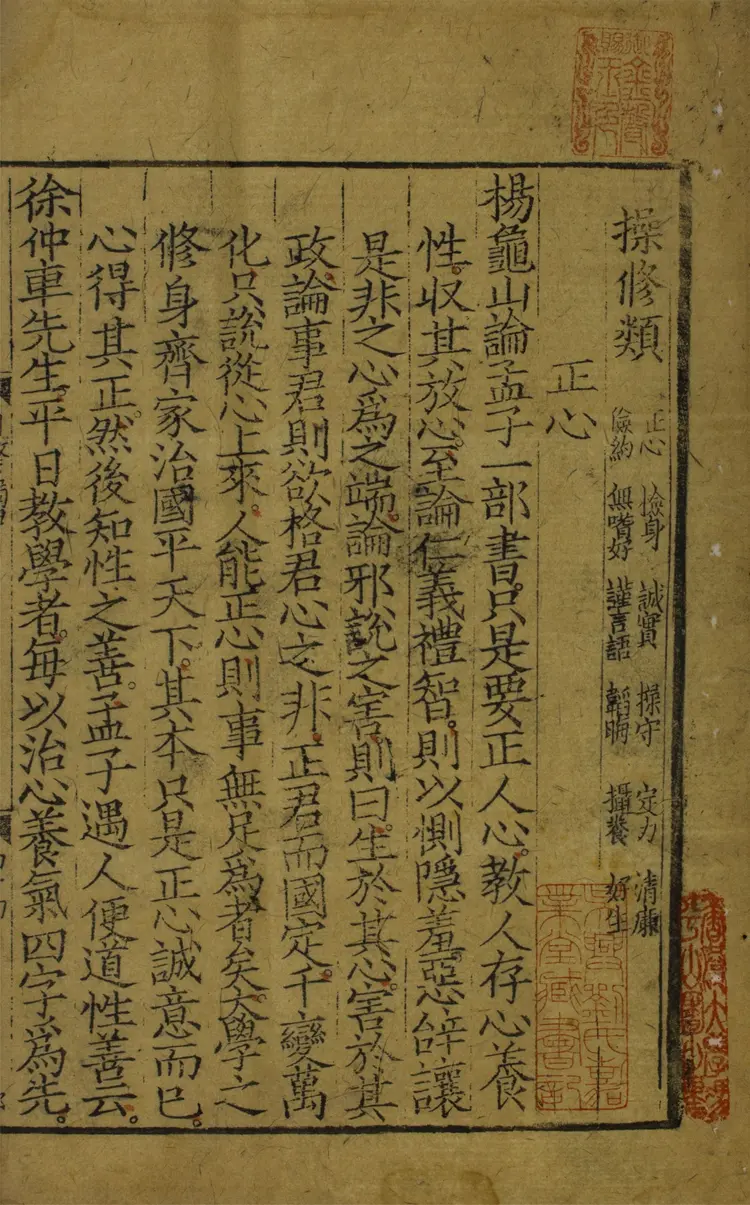 操修類
正心 撿身 誠實 操守 定力 清廉
儉約 無嗜好 謹言語 韜晦 攝養 好生
正心
楊龜山論孟子一部書只是要正人心教人存心養
性収其放心至論仁義禮智則以惻隠羞惡辝讓
是非之心爲之端論邪説之害則曰生於其心害於其
政論事君則欲格君心之非正君而國定千變萬
化只説從心上來人能正心則事無足爲者矣大學之
修身齊家治國平天下其本只是正心誠意而已
心得其正然後知性之善孟子遇人便道性善云
徐仲車先生平日教學者每以治心養氣四字爲先